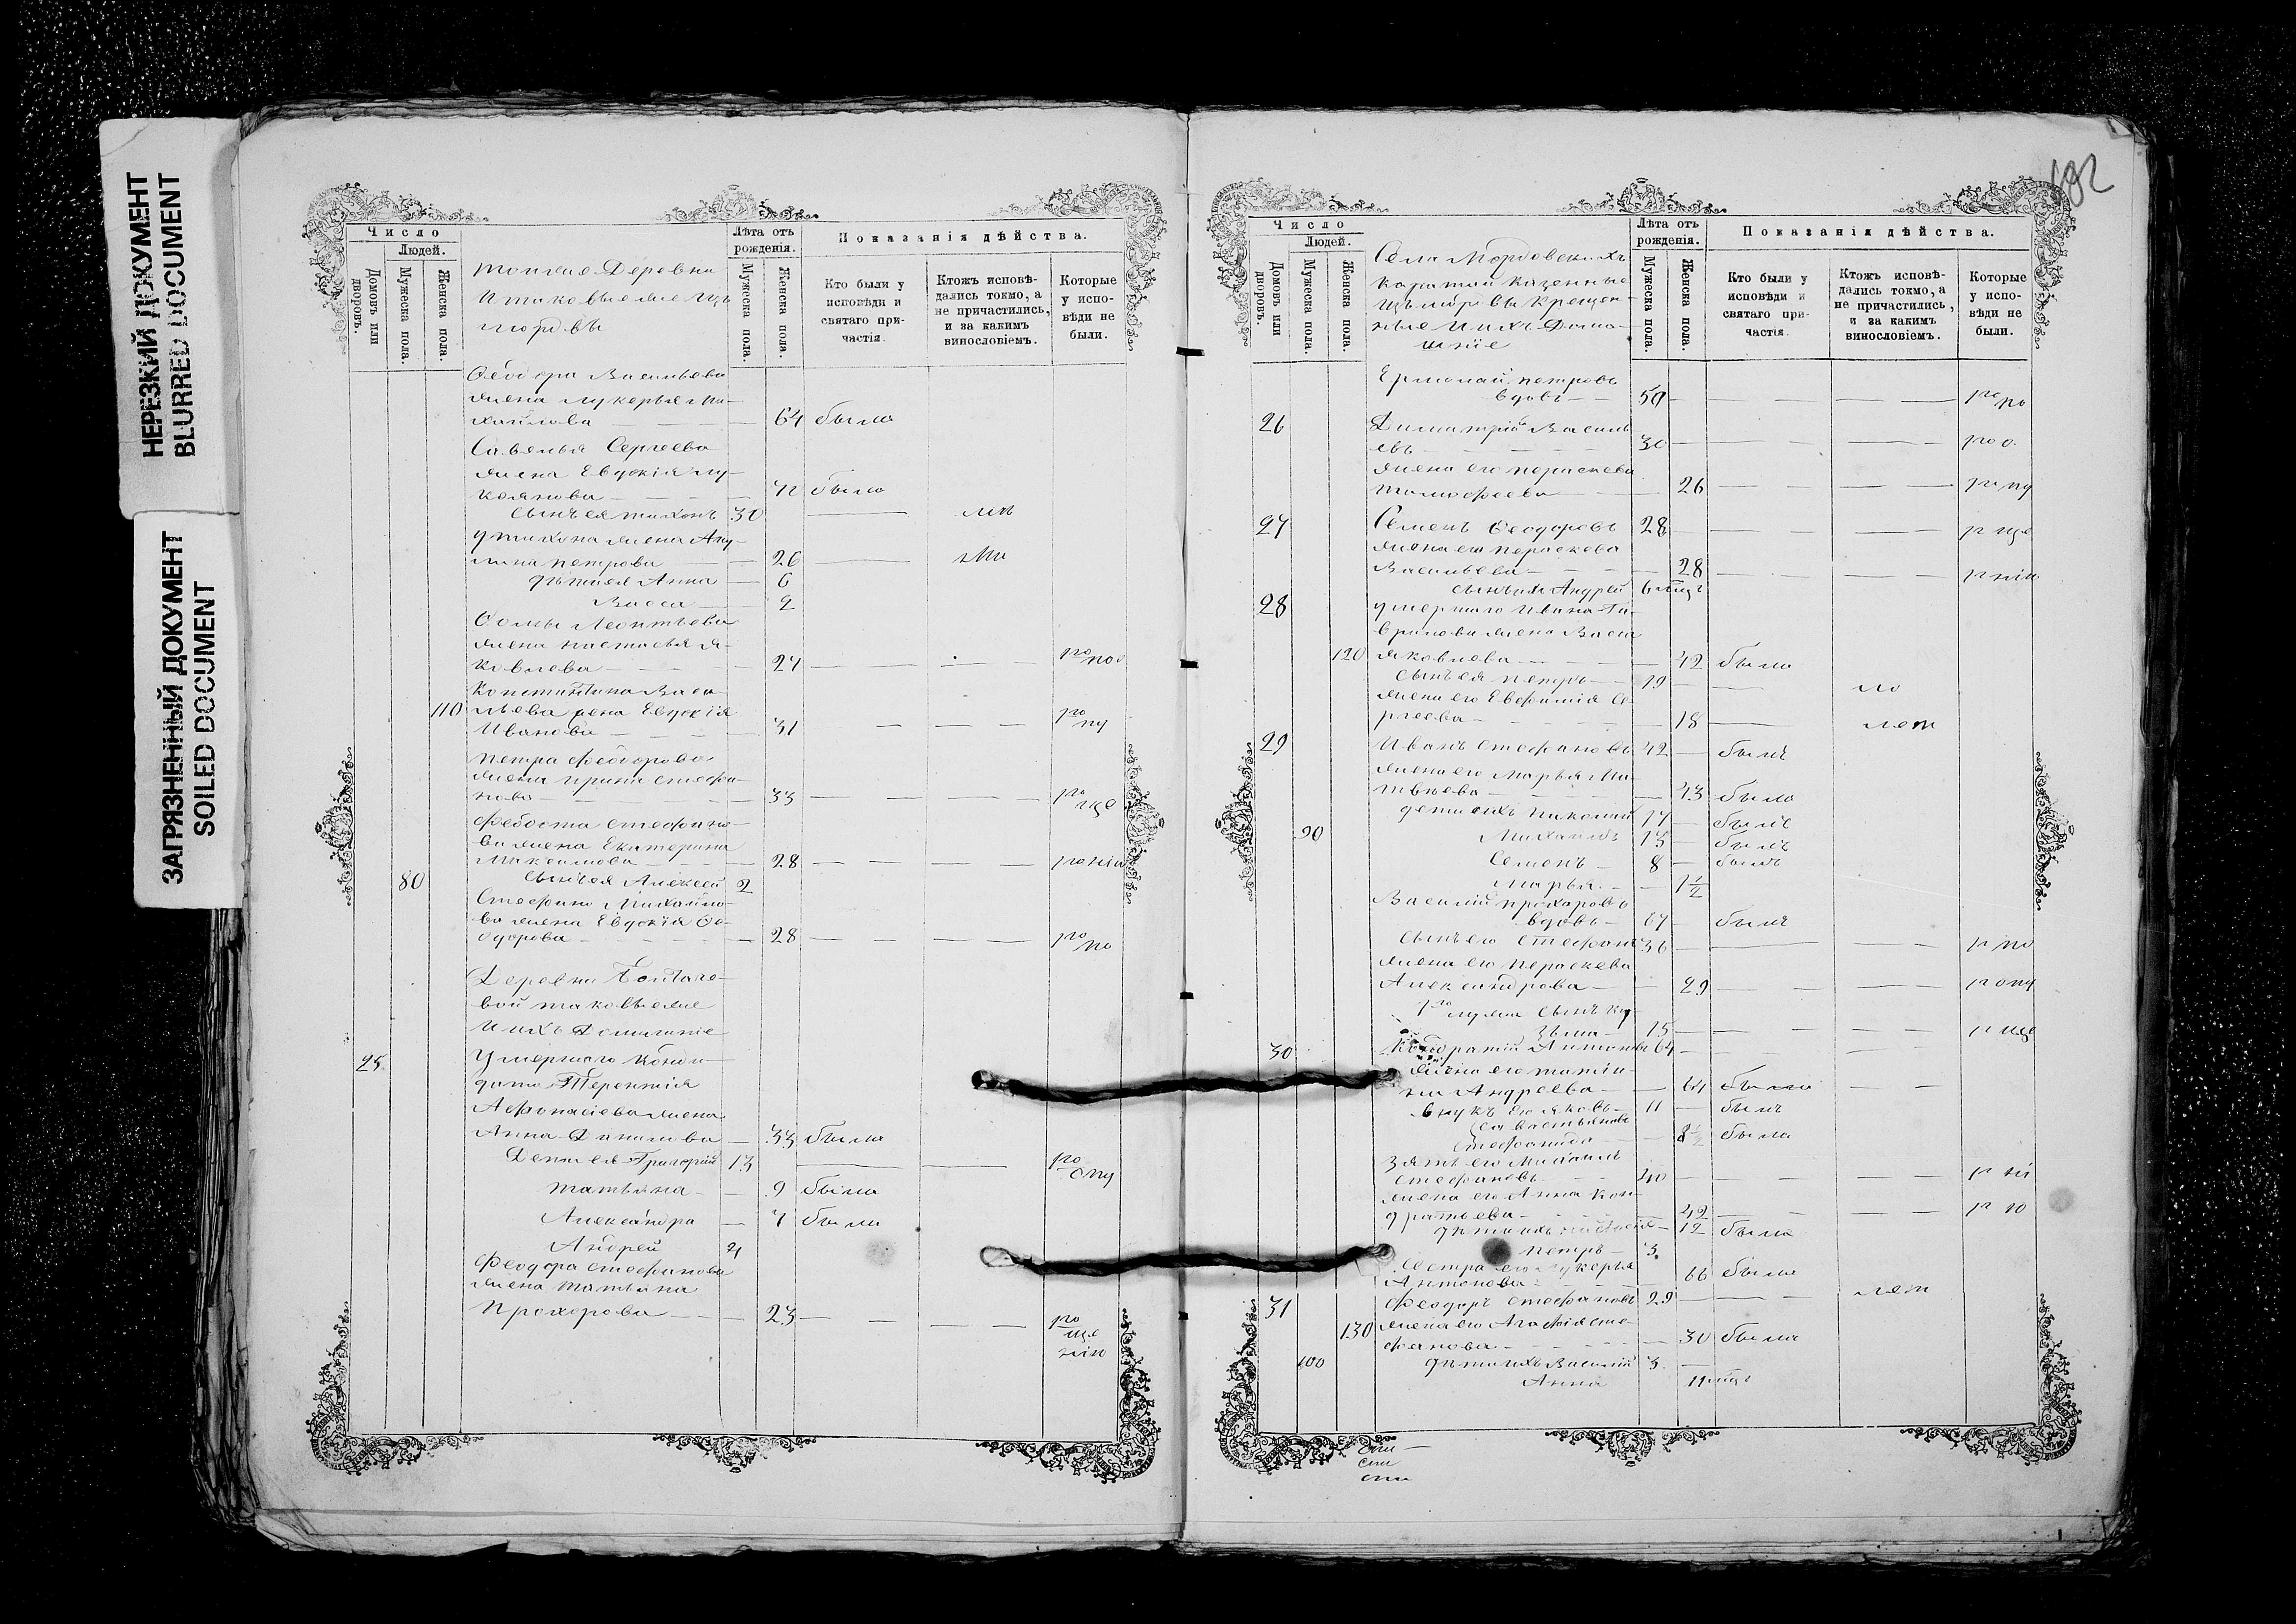 НЕРЕЗКИЙ ДОКУМЕНТ
BLURRED DOCUMENT
ЗАГРЯЗНЕННЫЙ ДОКУМЕНТ
SOILED DOCUMENT
Число
Людей.
Домовъ или дворовъ.
Мужеска пола.
Женска пола.
Деревни
Лѣта отъ рожденія.
Мужеска пола.
Женска пола.
Показанія дѣйства.
Кто были у исповѣди и святаго причастія.
Ктожъ исповѣдались токмо, а не причастились, и за какимъ винословіемъ.
Которые у исповѣди не были.
Ѳеодора Васильева
жена Лукерья Ми-
хайлова 64 была
Савелья Сергеева
жена Евдокія Лу-
42 была
сынъ ея Тихонъ 30
у Тихона жена Аку-
лина Петрова 26
дѣти ея Анна 6
Васса 2
Ѳомы Леонтьева
жена Настасья Я-
ковлева 27
Константина Васи-
110 льева жена Евдокія
Иванова 31
Петра Феодорова
жена Ирина Стефа-
нова 33
Стефано-
ва жена Екатерина
Максимова 28
80 сынъ ея Алексей 2
Стефана Михайло-
ва жена Евдокія Ѳе-
одорова 28
Деревни
вой таковые же
и ихъ домашніе
25 Умершаго
Терентія
Афонасіева жена
Анна Данилова 33 была
Дети ея Григорій 13
Татьяна 9 была
Александра 7 была
Андрей 4
Феодора Стефанова
жена Татьяна
Прохорова 23
682
Число
Людей.
Домовъ или дворовъ.
Мужеска пола.
Женска пола.
Села Мордовскихъ
Каратай казенные
изъ мордвы крещен-
ные и ихъ дома-
шніе
Лѣта отъ рожденія.
Мужеска пола.
Женска пола.
Показанія дѣйства.
Кто были у исповѣди и святаго причастія.
Ктожъ исповѣдались токмо, а не причастились, и за какимъ винословіемъ.
Которые у исповѣди не были.
Ермолай Петровъ
вдовъ 50
26 Димитрій Василь
евъ 30
жена его Параскева
Тимофеева 26
27 Семенъ Ѳеодоровъ 28
жена его Параскева
Васильева 28
сынъ ихъ Андрей 6 мцъ
28 умершаго Ивана Га-
врилова жена Васса
120 Яковлева 42 была
сынъ ея Петръ 19
жена его Евфимія Се-
ргеева 18
29 Иванъ Стефановъ 42 былъ
жена его Марья Ма-
твѣева 43 была
дети ихъ Николай 17 былъ
90 Михаилъ 13 былъ
Семенъ 8 былъ
Марья 1½
Василій Прохоровъ
вдовъ 67 былъ
сынъ его Стефанъ 36
жена его Параскева
Александрова 29
сынъ Ку-
зьма 15
30 Кондратій Антоновъ 64
жена его Татія-
на Андреева 64 была
внукъ его Яковъ 11 былъ
Стефанида 8½ была
зять его Михаилъ
Стефановъ 40
жена его Анна Кон-
дратьева 42
дѣти ихъ Настасія 12 была
Петръ 3
Сестра его Лукерья
Антонова 66 была
31 Феодоръ Стефановъ 29
130 жена его Агафія Сте-
фанова 30 была
100 дѣти ихъ Василій 3
Анна 11 мцъ